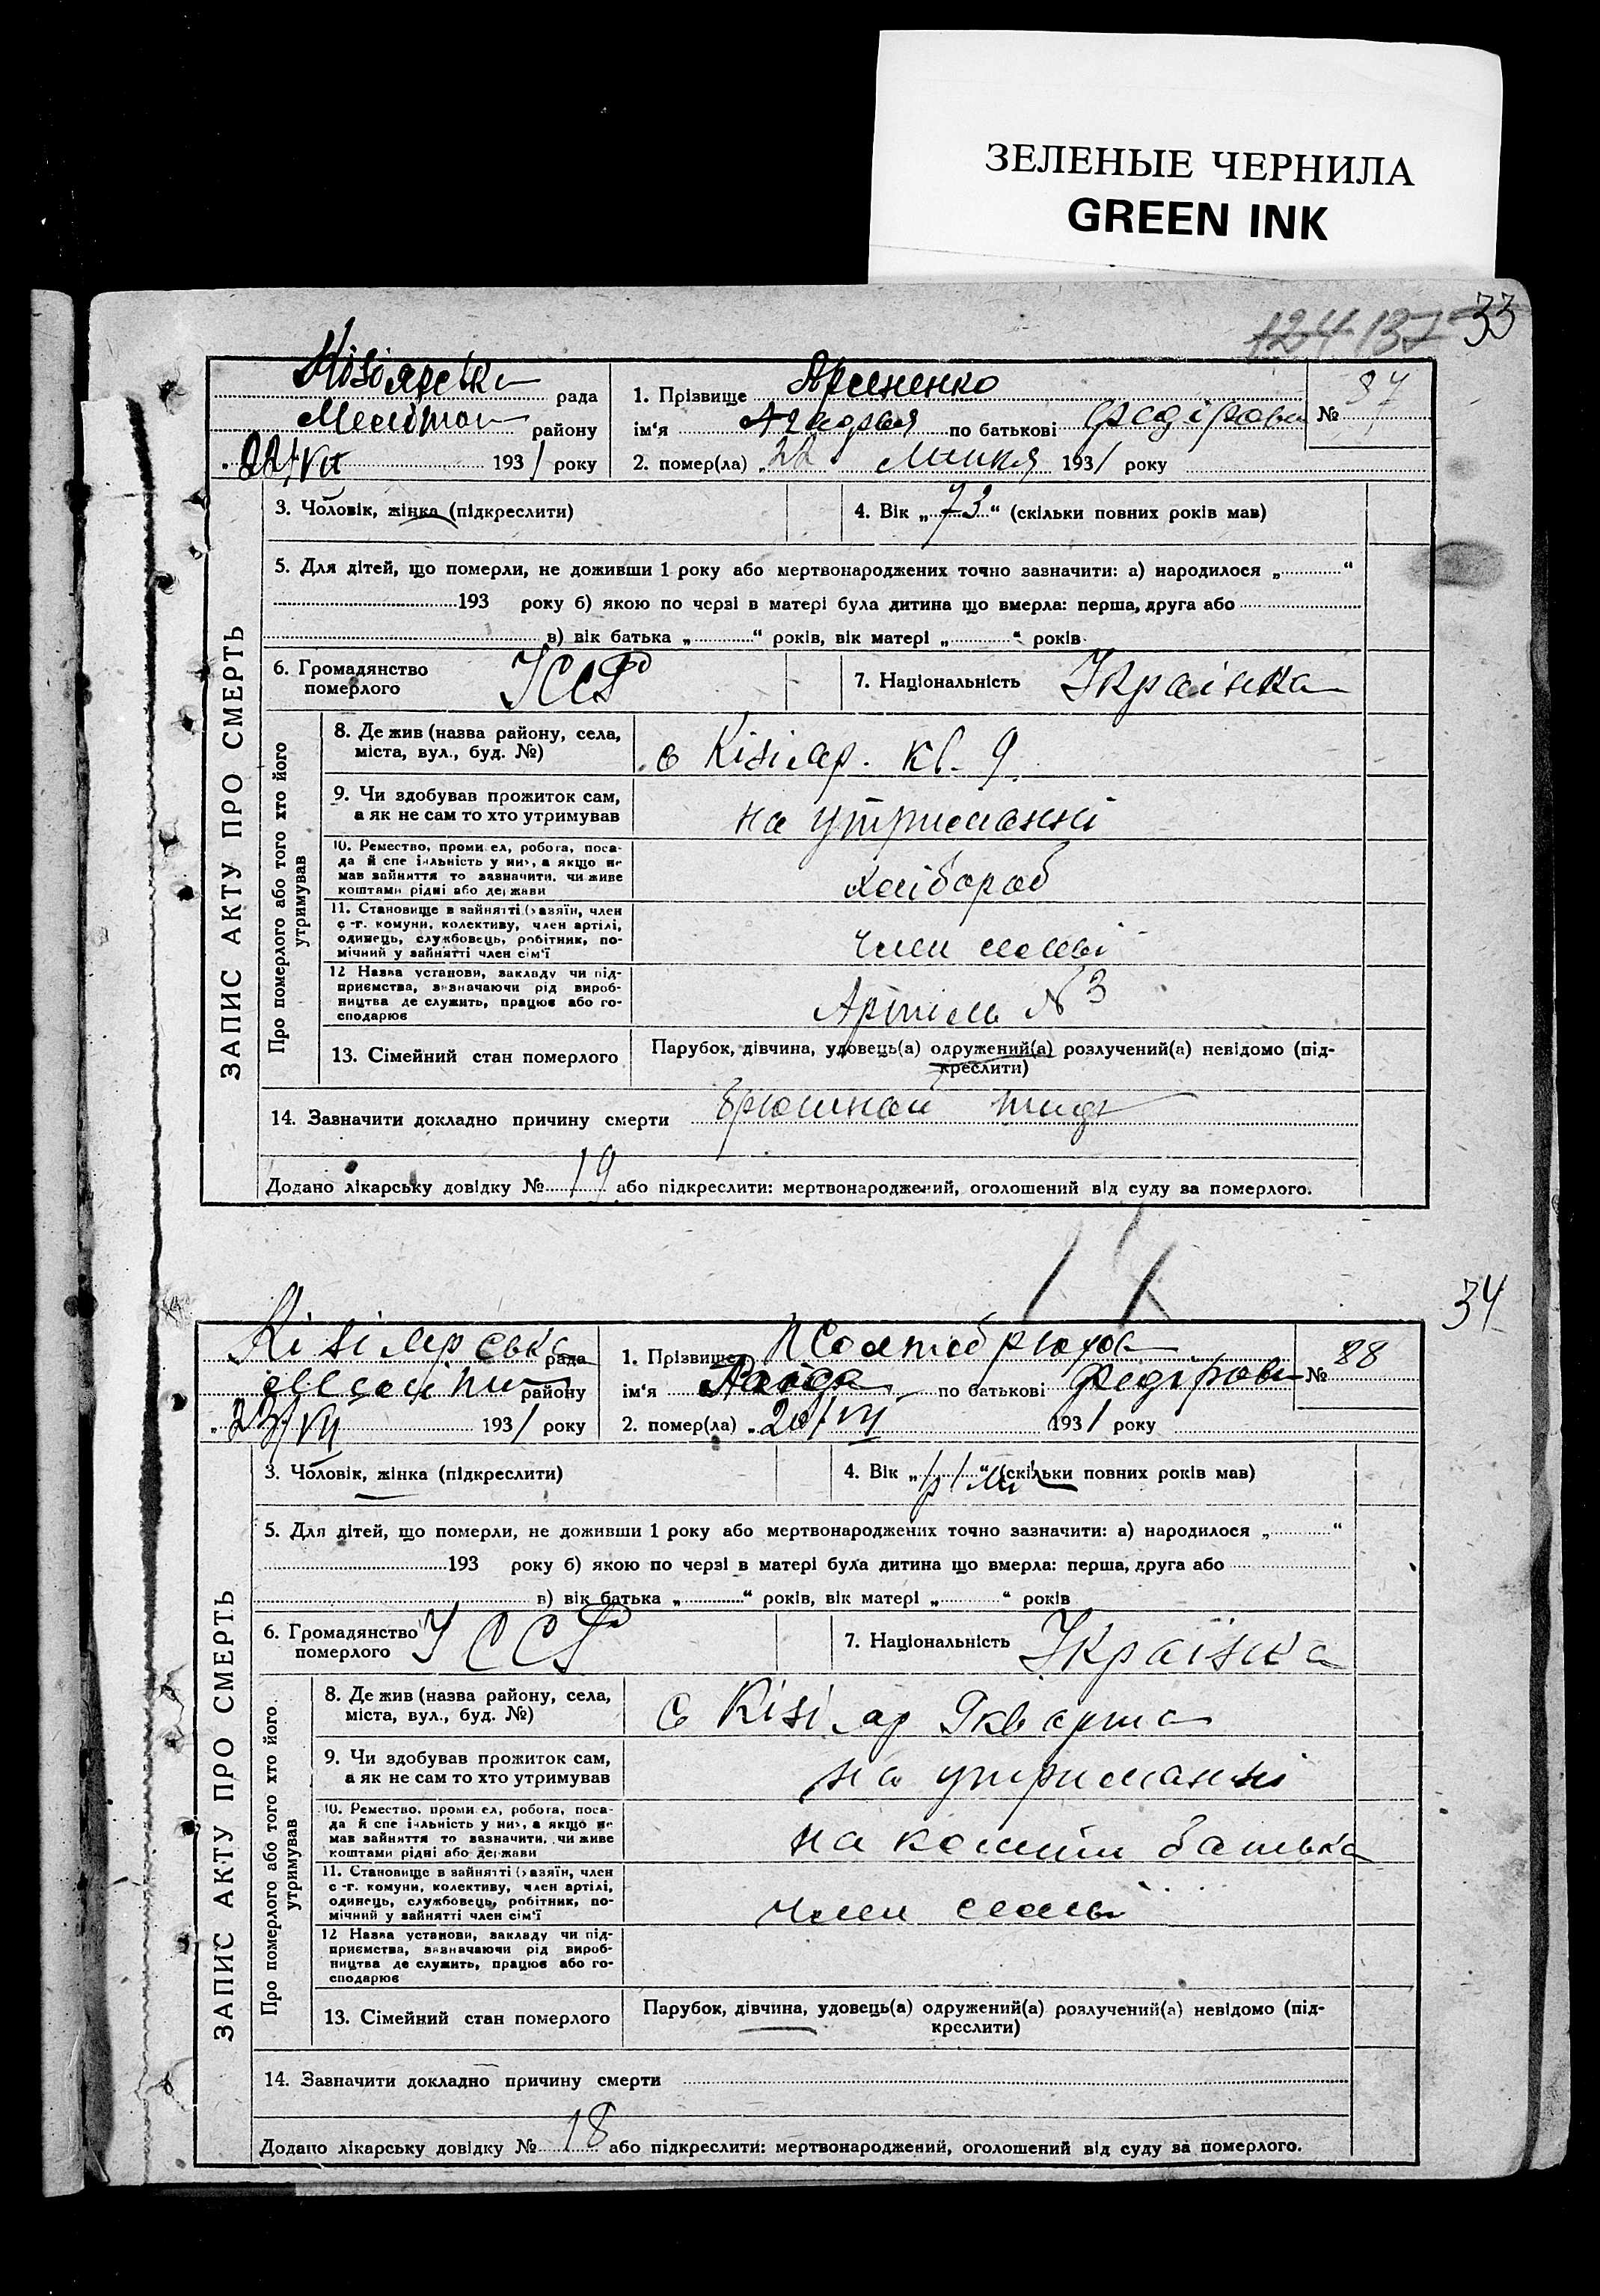 ЗЕЛЕНЫЕ ЧЕРНИЛА
GREEN INK
124 137 33
рада
району
22/VII 1931 року
1. Прізвище Яременко
ім'я по батькові Федіровн
2. помер(ла) „22 Липня 1931 року
№ 87
ЗАПИС АКТУ ПРО СМЕРТЬ
3. Чоловік, жінка (підкреслити)
4. Вік „73“ (скільки повних років мав)
5. Для дітей, що померли, не доживши 1 року або мертвонароджених точно зазначити: а) народилося „ “
193 року б) якою по черзі в матері була дитина що вмерла: перша, друга або
в) вік батька „ “ років, вік матері „ “ років
6. Громадянство померлого УССР
7. Національність Українка
Про померлого або того хто його утримував
8. Де жив (назва району, села,
міста, вул., буд. №)
с Кізіляр. кв. 9
9. Чи здобував прожиток сам,
а як не сам то хто утримував
на утриманні
10. Ремество, промисел, робота, поса-
да й спеціяльність у них, а якщо не
мав зайняття то зазначити, чи живе
коштами рідні або держави
хлібороб
11. Становище в зайнятті (хазяїн, член
с-г. комуни, колективу, член артілі,
одинець, службовець, робітник, по-
мічний у зайнятті член сім'ї
член семьї
12 Назва установи, закладу чи під-
приємства, зазначаючи рід вироб-
ництва де служить, працює або го-
сподарює
Артіль № 3
13. Сімейний стан померлого
Парубок, дівчина, удовець(а) одружений(а) розлучений(а) невідомо (під-
креслити)
14. Зазначити докладно причину смерти брюшной тиф
Додано лікарську довідку № 19 або підкреслити: мертвонароджений, оголошений від суду за померлого.
34
Кізілярська рада
району
„23/VII 1931 року
1. Прізвище
ім'я по батькові Федіровн
2. помер(ла) „20/VII 1931 року
№ 88
ЗАПИС АКТУ ПРО СМЕРТЬ
3. Чоловік, жінка (підкреслити)
4. Вік „1 р 1 м“ (скільки повних років мав)
5. Для дітей, що померли, не доживши 1 року або мертвонароджених точно зазначити: а) народилося „ “
193 року б) якою по черзі в матері була дитина що вмерла: перша, друга або
в) вік батька „ “ років, вік матері „ “ років
6. Громадянство померлого УССР
7. Національність Українка
Про померлого або того хто його утримував
8. Де жив (назва району, села,
міста, вул., буд. №)
с Кізіляр 9 кварта
9. Чи здобував прожиток сам,
а як не сам то хто утримував
на утриманні
10. Ремество, промисел, робота, поса-
да й спеціяльність у них, а якщо не
мав зайняття то зазначити, чи живе
коштами рідні або держави
на кошти батька
11. Становище в зайнятті (хазяїн, член
с-г. комуни, колективу, член артілі,
одинець, службовець, робітник, по-
мічний у зайнятті член сім'ї
член семьї
12 Назва установи, закладу чи під-
приємства, зазначаючи рід вироб-
ництва де служить, працює або го-
сподарює
13. Сімейний стан померлого
Парубок, дівчина, удовець(а) одружений(а) розлучений(а) невідомо (під-
креслити)
14. Зазначити докладно причину смерти
Додано лікарську довідку № 18 або підкреслити: мертвонароджений, оголошений від суду за померлого.